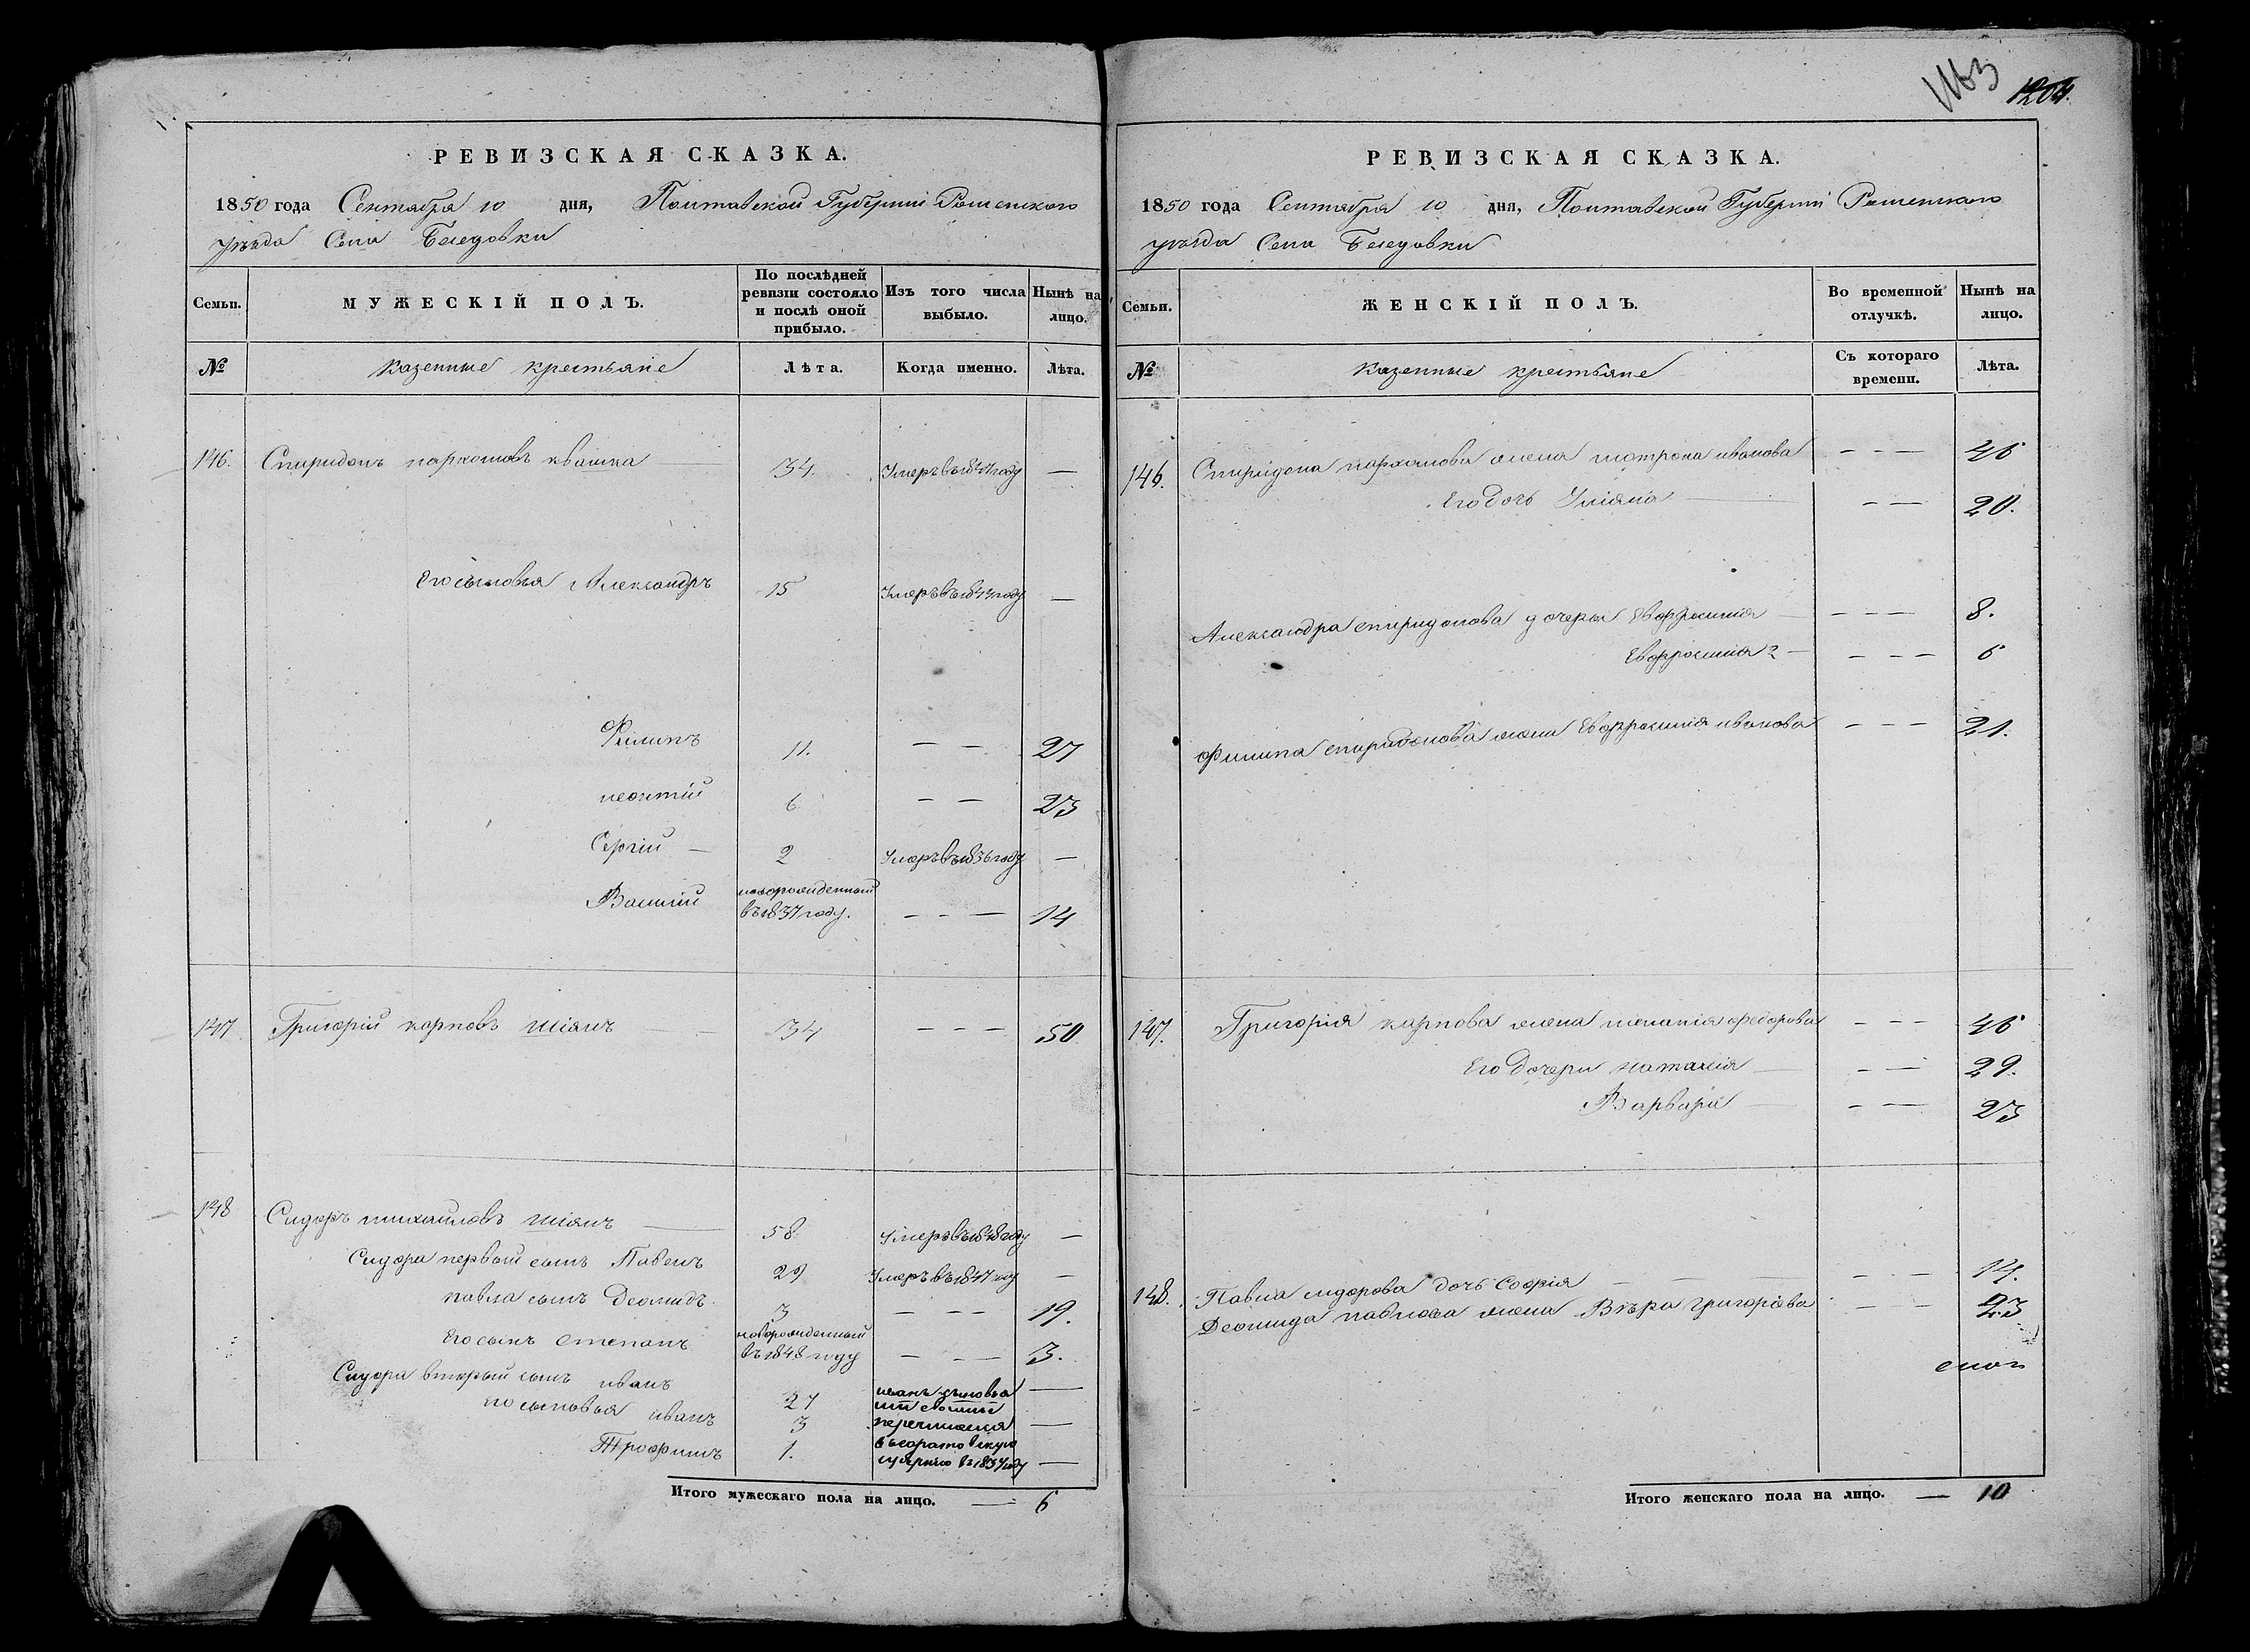 1163 1204.
РЕВИЗСКАЯ СКАЗКА.
1850 года Сентября 10 дня, Полтавской Губерніи Роменского
уѣзда Села Беседовки
Семьи. МУЖЕСКІЙ ПОЛЪ. По послѣдней ревизіи состояло и послѣ оной прибыло. Изъ того числа выбыло. Нынѣ на лицо.
№ Казенные крестьяне Лѣта. Когда именно. Лѣта.
146. Спиридонъ пархомовъ квашка 34. Умеръ въ 1841 году —
Его сыновья Александръ 15 Умеръ въ 1844 году —
Филипъ 11. — — 27
леонтій 6 — — 23
Сергій — 2 Умеръ въ 1836 году —
Василій новорожденный
въ 1837 году. — — — 14
147 Григорій карповъ шіянъ 34 — — — 50
148 Сидоръ михайловъ шіянъ 58 Умеръ въ 1848 году —
Сидора первый сынъ Павелъ 29 Умеръ въ 1847 году —
павла сынъ Деомидъ 3 — — — 19.
Его сынъ степанъ новорожденный
въ 1848 году — — — 3.
Сидора вторый сынъ иванъ 27 иванъ сыновья —
сыновья иванъ 3 перечислился —
Трофимъ 1. въ саратовскую
губернію въ 1837 году —
Итого мужескаго пола на лицо. — 6
РЕВИЗСКАЯ СКАЗКА.
1850 года Сентября 10 дня, Полтавской Губерніи Роменского
уѣзда Села Беседовки
Семьи. ЖЕНСКІЙ ПОЛЪ. Во временной отлучкѣ. Нынѣ на лицо.
№ Казенные крестьяне Съ котораго времени. Лѣта.
146. Спиридона пархомова жена мотрона иванова — — — 46
Его дочь Уліяна — — — 20.
Александра спиридонова дочери Евфросинія — — — 8.
Евфросинія 2 — — — — 6
Филипа спиридонова жена Евфросинія иванова — — — 21.
147. Григорія карпова жена меланія федорова — — — 46
Его дочери наталія — — — 29.
Варвара — — — 23
148. Павла сидорова дочь Софія — — — 14.
Деомида павлова жена Вѣра григоріева — — 23
Итого женскаго пола на лицо. — 10